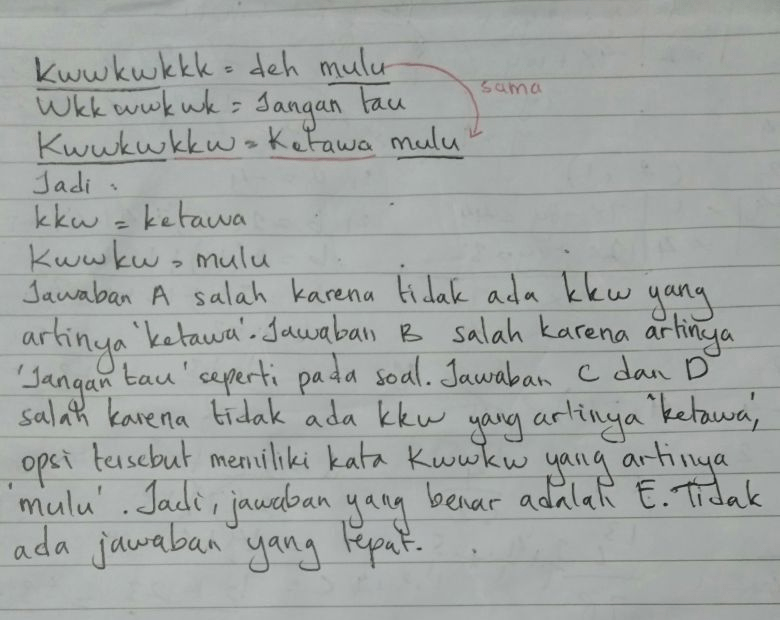 Kwwkwkkk = deh mulu
sama
Wkkwwkwk = Jangan tau
Kwwkwkkw = Ketawa mulu
Jadi :
kkw = ketawa
Kwwkw = mulu
Jawaban A salah karena tidak ada kkw yang
artinya 'ketawa'. Jawaban B salah karena artinya
'Jangan tau' seperti pada soal. Jawaban C dan D
salah karena tidak ada kkw yang artinya 'ketawa',
opsi tersebut memiliki kata Kwwkw yang artinya
'mulu'. Jadi, jawaban yang benar adalah E. Tidak
ada jawaban yang tepat.